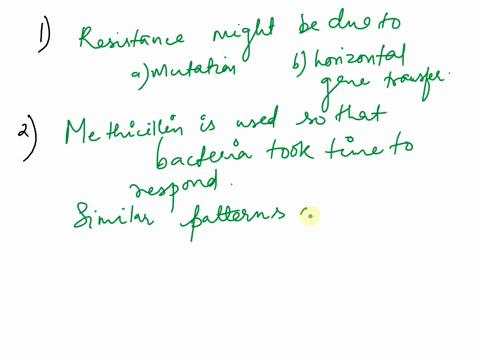 1) Resistance might be due to
a) Mutation b) horizontal
gene transfer.
2) Methicillin is used so that
bacteria took time to
respond.
Similar patterns